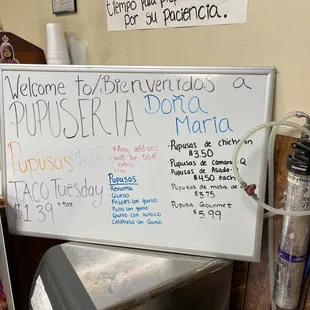 tiempo para
por su Paciencia.
Welcome to/Bienvenidos a
PUPUSERIA Doña
Maria
Pupusas
TACO Tuesday
$1.39 +tax
will be 50¢
Pupusas
Revuelta
Queso
Frijoles con queso
Pollo con queso
Queso con loroco
Calabaza con Queso
Pupusas de chicharron
$3.50
Pupusas de Camaron
Pupusas de Asada
$4.50 each
Pupusas de masa de
$3.75
Pupusa Gourmet
$5.99